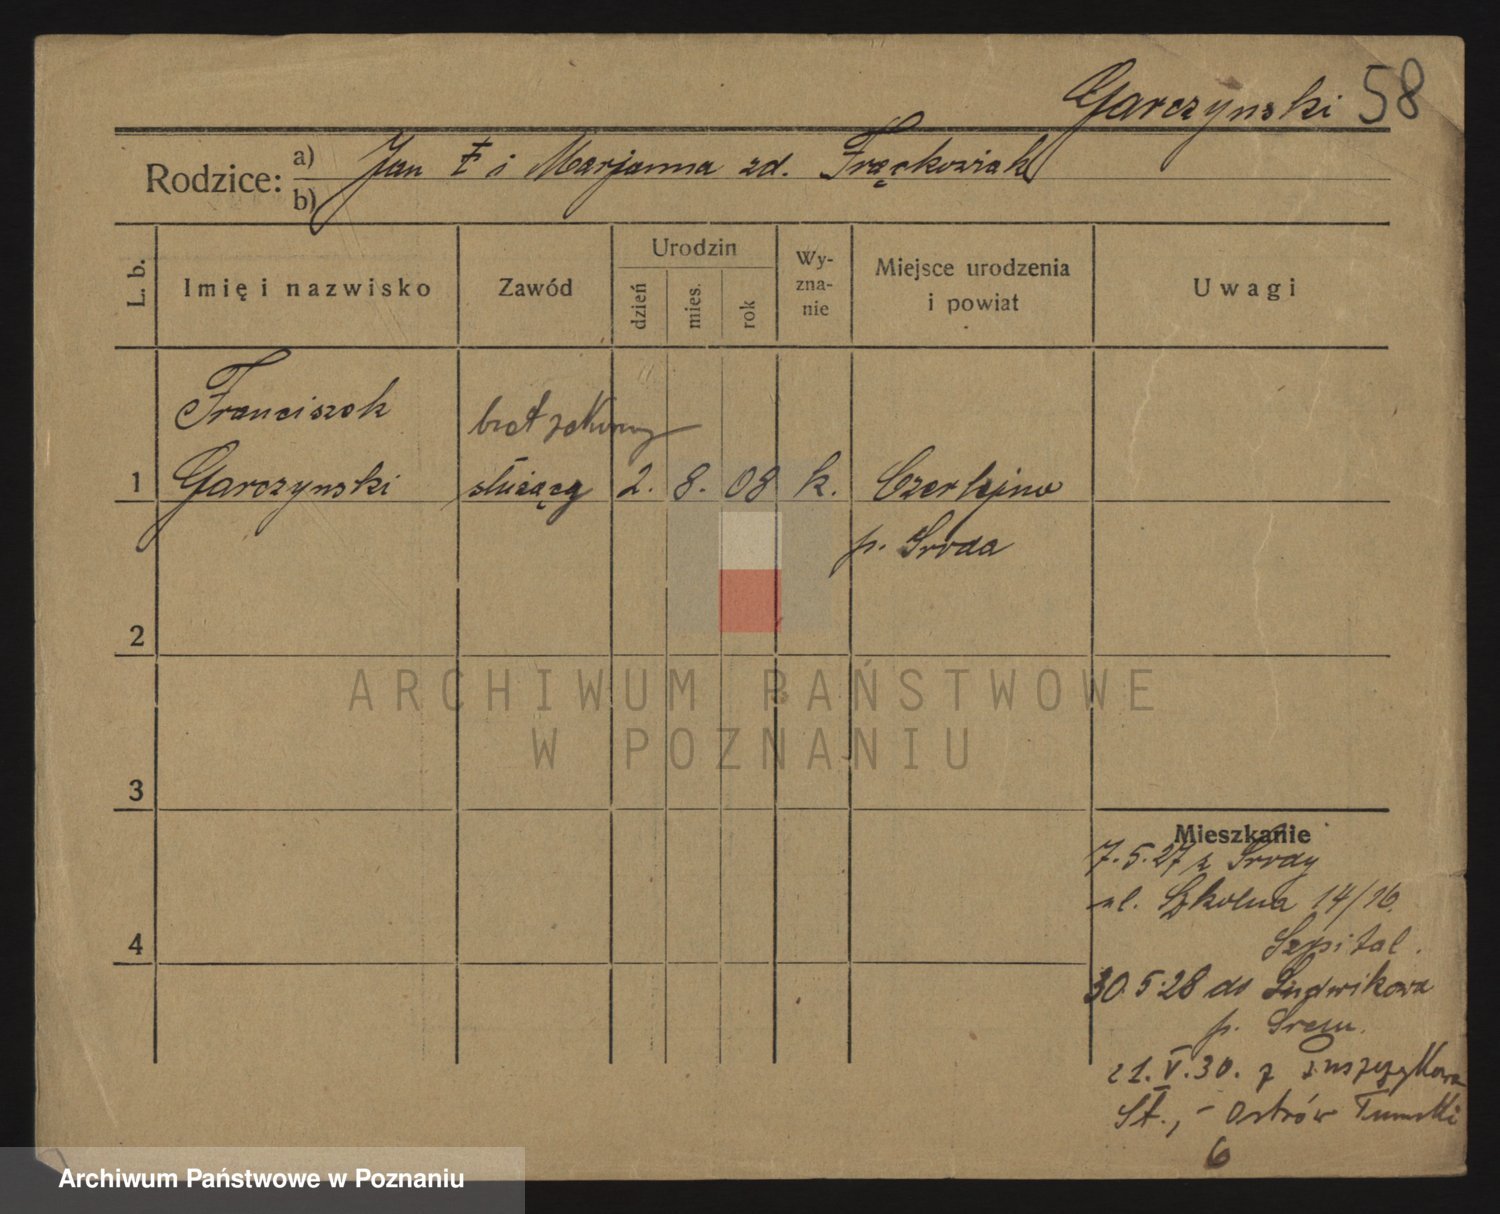 Garczynski 58
Rodzice: a) Jan i Marjanna zd. Frąckowiak
b)
L. b.
Imię i nazwisko
Zawód
Urodzin
dzień
mies.
rok
Wy-
zna-
nie
Miejsce urodzenia
i powiat
Uwagi
Franciszek
brat zakonny
1 Garczynski służący 2. 8. 08 k. Czerlejno
p. Sroda
2
3
4
Mieszkanie
7.5.27 z Srody
ul. Szkolna 14/16.
Szpital.
30.5.28 do Ludwikowa
p. Srem.
21.V.30. z
St., - Ostrów Tumski
6
ARCHIWUM PAŃSTWOWE
W POZNANIU
Archiwum Państwowe w Poznaniu